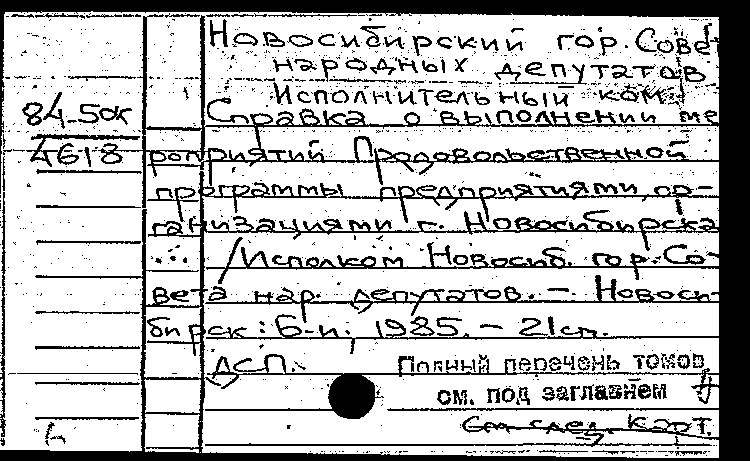 Новосибирский гор. Совет
народных депутатов
Исполнительный ком.
84-5ок
Справка о выполнении ме
4618
роприятий Продовольственной
программы предприятиями, ор-
ганизациями г. Новосибирска
... /Исполком Новосиб. гор. Со-
вета нар. депутатов. – Новоси-
бирск: Б-и, 1985. – 21 см.
ДСП.
Полный перечень томов
см. под заглавием
См. след. карт.